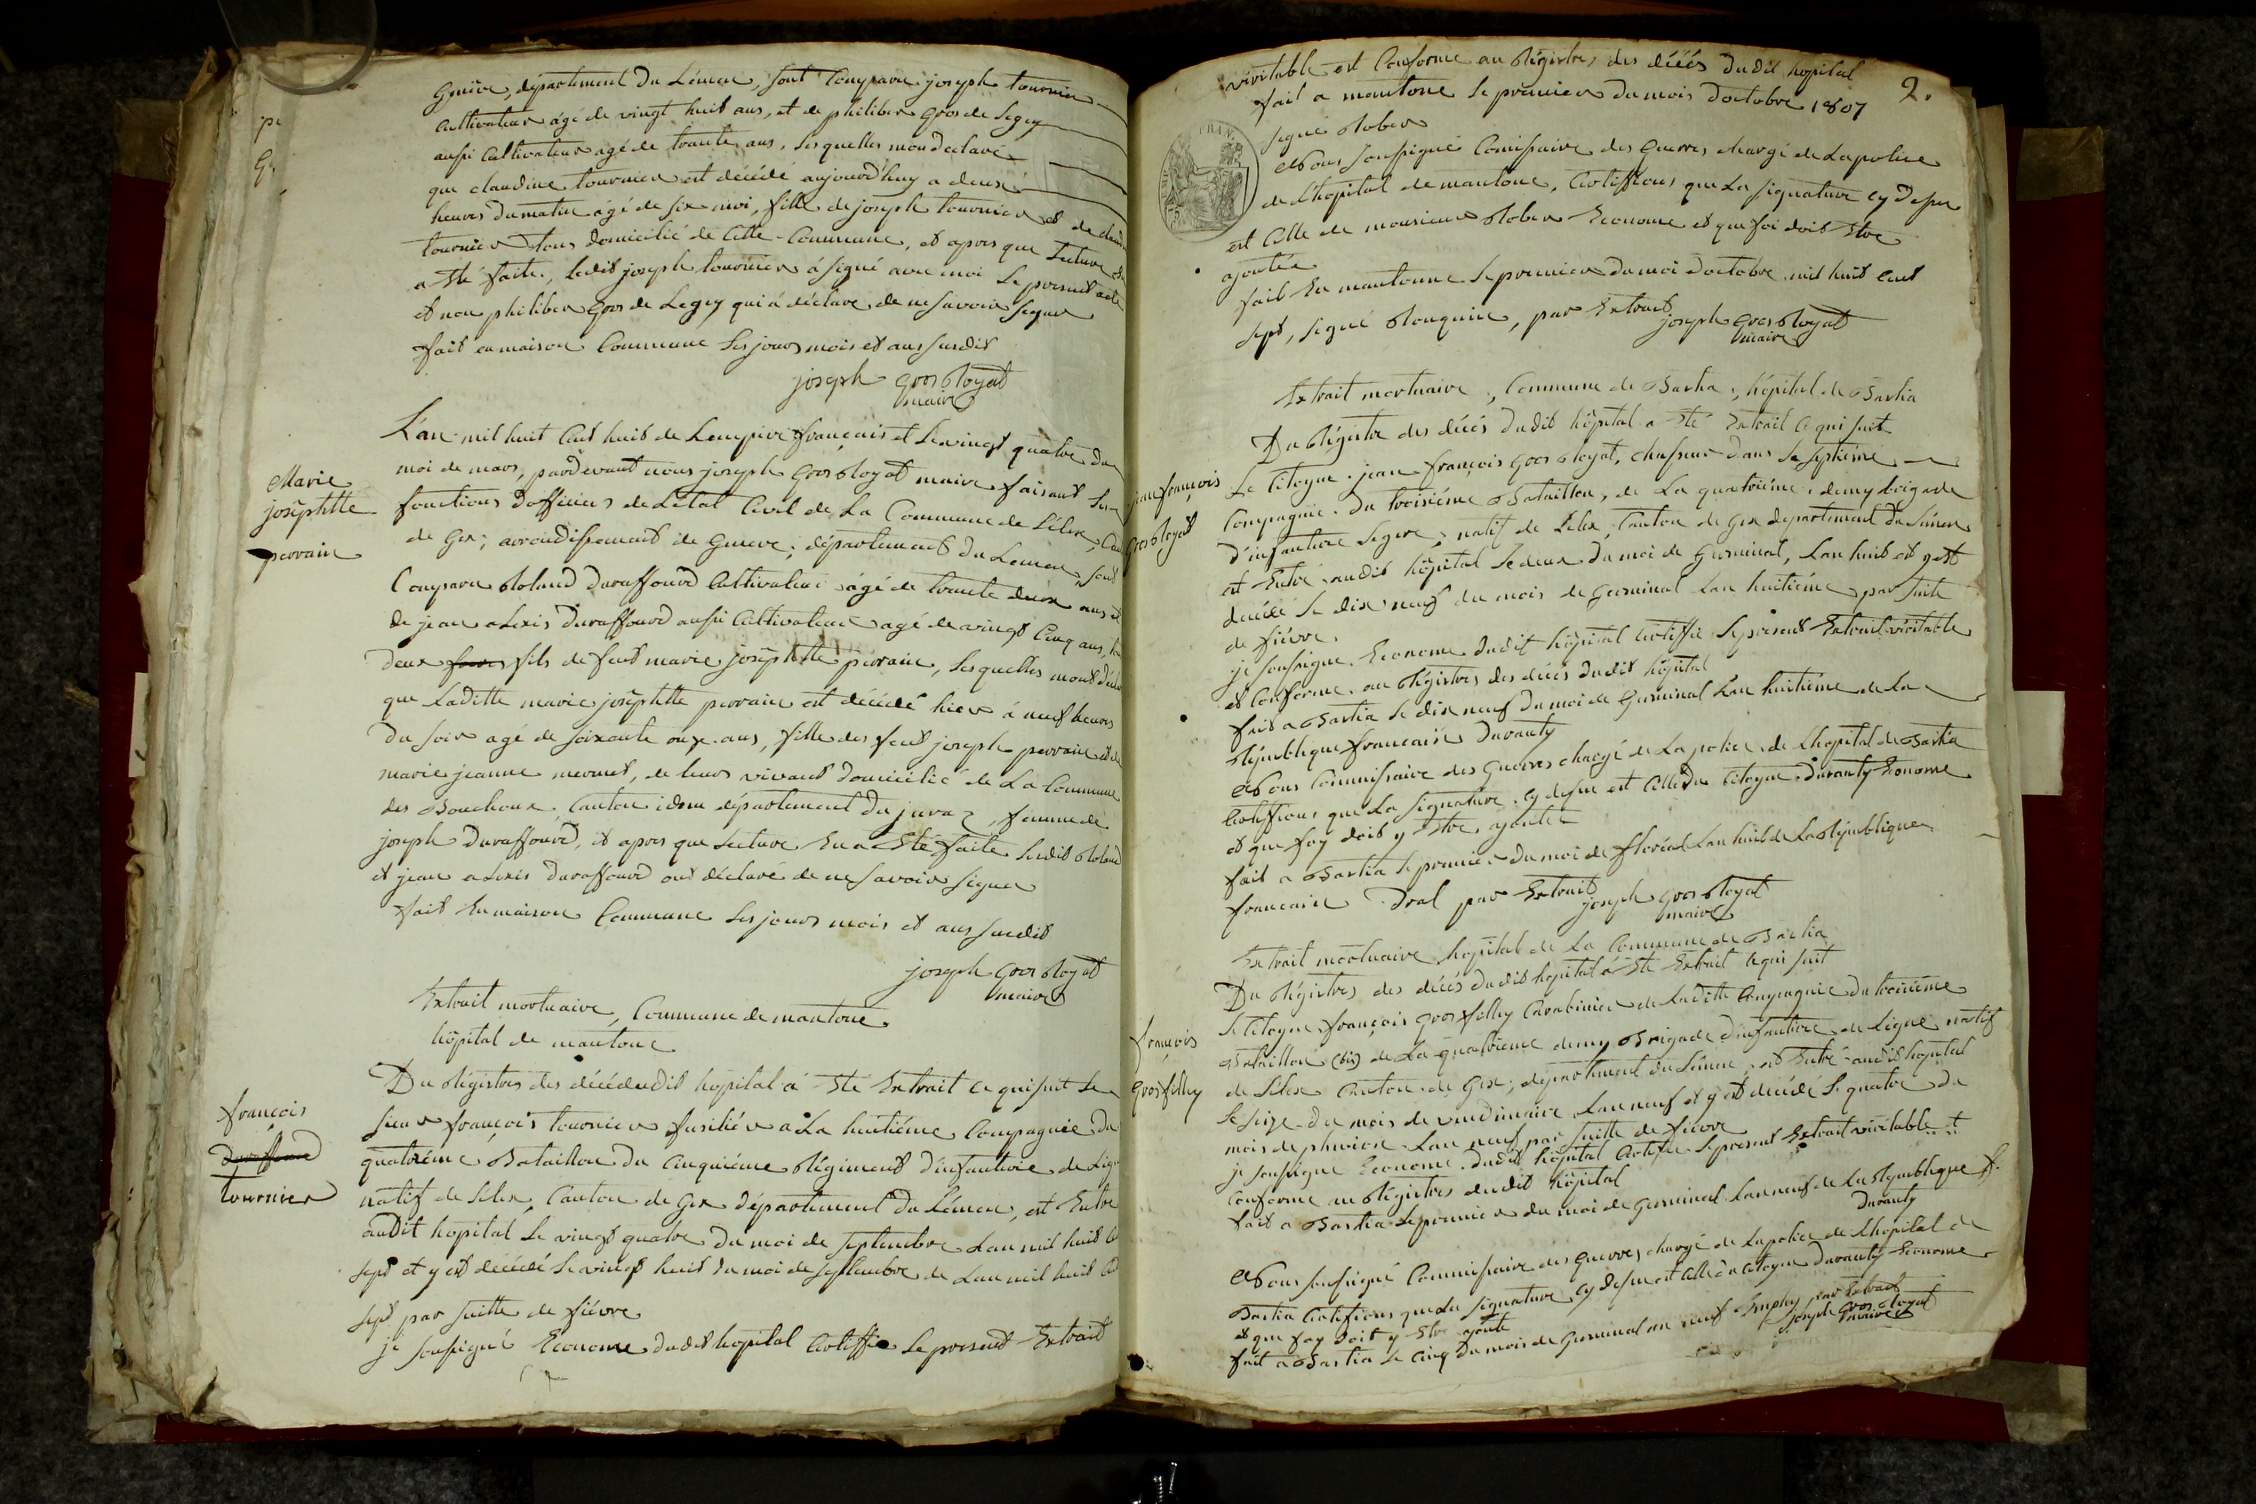 genève, département du Léman, sont Comparu joseph tournier
Cultivateur agé de vingt huit ans, et de philiber Gros de Legey
aussi Cultivateur agé de trante ans, lesquelles mon déclaré
que claudine tournier est décédé aujourd'huy a deux
heures du matin agé de six moi, fille de joseph tournier et de
tournier tous domicilié de Cette Commune, et apres que Lecture
a Eté faite, ledit joseph tournier à signé avec moi Le present acte
et non philiber Gros de Legey qui à déclare de ne savoir signer
fait en maison Commune les jours mois et ans susdit
joseph Gros Royat
maire
Marie
joséphtte
perrain
L'an mil huit Cent huit de Lempire français et le vingt quatre du
moi de mars, pardevant nous joseph Gros Royat maire faisant les
fonctions dofficier de Létat Civil de La Commune de Lélex,
de Gex; arrondissement de Geneve; département du Leman, sont
Comparu Roland Duraffourd Cultivateur agé de trante deux ans et
de jean alexis Duraffourd aussi Cultivateur agé de vingt Cinq ans,
deux fils de feut marie joséphtte perrain, lesquelles mont
que Laditte marie joséphtte perrain est décédé hier à neuf heures
du soir agé de soixante onze ans, fille des feut joseph perrain et de
marie jeanne mermet, de leurs vivant domicilié de La Commune
des Bouchoux, Canton idem département du jura, femme de
joseph Duraffourd, et apres que Lecture En a Eté faite Ledit Roland
et jean alexis Duraffourd ont déclaré de ne savoir signer
fait En maison Commune les jours mois et ans susdit
joseph Gros Royat
maire
Extrait mortuaire, Commune de mantoue
hôpital de mantoue
françois
Duraffourd
tournier
Du Régistres des décé dudit hopital à Eté Extrait ce qui suit Le
sieur françois tournier fusilié a La huitiéme Compagnie du
quatriéme Bataillon du Cinquiéme Régiment d'infanterie de
natif de Lelex, Canton de Gex département du Léman, est Entré
audit hopital Le vingt quatre du moi de septembre Lan mil huit
sept et y est décédé Le vingt huit du moi de septembre de Lan mil huit
sept par suitte de fiévre
je soussigné Econome dudit hopital Certiffie Le present Extrait
2.
véritable et Conforme au Régistres des décés dudit hopital
fait a mantoue le premier du mois doctobre 1807
signé Rober
Nous soussigné Comissaire des Guerres chargé de La police
de Lhopital de mantoue, Certiffions que La signature cy dessu
est Celle de monsieur Rober Econome et que foi doit Etre
ajoutée
fait En mantoue le premier du moi doctobre mil huit Cent
sept, signé Rouquin, par Extrait
joseph Gros Royat
maire
Extrait mortuaire, Commune de Bastia, hôpital de Bastia
Du Régistre des décés dudit hôpital a Eté Extrait Ce qui suit
jean françois
Gros Royat
Le Citoyen jean françois Gros Royat, chasseur dans la septiéme
Compagnie du troisiéme Bataillon, de La quatriéme demy brigade
d'infanterie Legere, natif de Lelex, Canton de Gex département du Léman
est Entré audit hôpital le deux du moi de Germinal, Lan huit et y est
décédé le dix neuf du mois de Germinal Lan huitiéme par suite
de fiévre
je soussigné Econome dudit hôpital Certiffie le present Extrait véritable
et Conforme au Régistres des décés dudit hôpital
fait a Bastia le dix neuf du moi de Germinal L'an huitiéme de La
République francaise Duranty
Nous Commissaire des Guerres chargé de La police de Lhopital de Bastia
Certiffions que La signature cy dessu est Celle du Citoyen Duranty Econome
et que foy doit y Etre ajoutée
fait a Bastia le premier du moi de floréal Lan huit de La République
francaise par Extrait
joseph Gros Royat
maire
Extrait mortuaire hopital de La Commune de Bastia
Du Régistres des décés dudit hopital à Eté Extrait Ce qui suit
françois
Gros filly
le Citoyen françois Gros filly Carabinier de Laditte Compagnie du troisiéme
Bataillon (bis) de La quatrieme demy Brigade dinfanterie de Ligne natif
de Lelex Canton de Gex, département du Léman, est Entré audit hopital
le seize du mois de vendimiaire Lan neuf et y est décédé le quatre du
mois de pluviose Lan neuf par suitte de fiévre
je soussigné Econome dudit hôpital Certiffie le present Extrait véritable et
Conforme au Régistres dudit hôpital
fait a Bastia le premier du moi de Germinal Lan neuf de La République f.
Duranty
Nous soussigné Commissaire des Guerres chargé de La police de Lhopital de
Bastia Certiffions que La signature cy dessu est Celle du Citoyen Duranty Econome
et que foy doit y Etre ajouté
fait a Bastia le Cinq du mois de Germinal an neuf par Extrait
joseph Gros Royat
maire